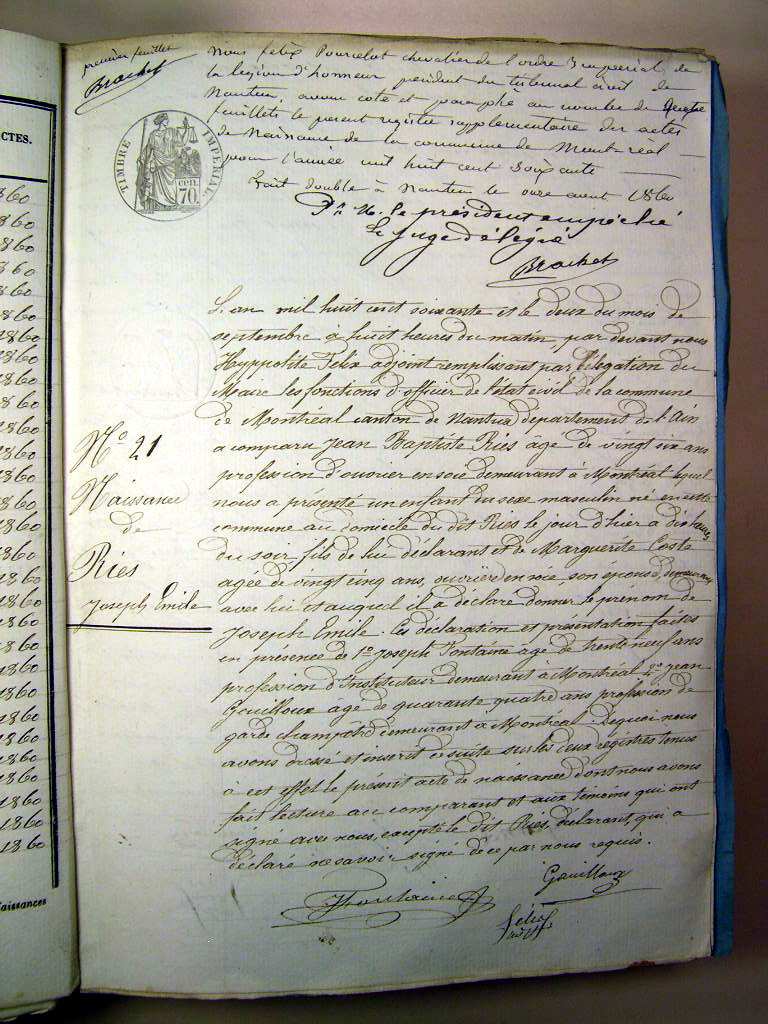 premier feuillet
Brachet
Nous félix Pourcelot chevalier de l'ordre Imperial de
la légion d'honneur président du tribunal civil de
Nantua, avons coté et paraphé au nombre de
feuillets le present registre supplementaire des actes
de Naissance de la commune de Montréal
pour l'année mil huit cent soixante
Fait double à Nantua le onze aout 1860
Pr. M. le président empêché
Le Juge délégué
Brachet
TIMBRE IMPÉRIAL
70 cen.
L'an mil huit cent soixante et le deux du mois de
septembre à huit heures du matin, par devant nous
Hyppolite Félix adjoint remplissant par délégation du
Maire les fonctions d'officier de l'état civil de la commune
de Montréal canton de Nantua département de l'Ain
a comparu Jean Baptiste Ries âge de vingt six ans
profession d'ouvrier en soie demeurant à Montréal lequel
nous a présenté un enfant du sexe masculin né en cette
commune au domicile du dit Ries le jour d'hier à dix heures
du soir fils de lui déclarant et de Marguerite Coste
agée de vingt cinq ans, ouvrière en soie son épouse, demeurant
avec lui et auquel il a déclaré donner le prenom de
Joseph Emile. Ces déclaration et présentation faites
en présence de 1o Joseph Fontaine age de trente neuf ans
profession d'Instituteur demeurant à Montréal 2o jean
Gouilloux age de quarante quatre ans profession de
garde champêtre demeurant à Montréal. De quoi nous
avons dressé et inscrit ensuite sur les deux régistres tenus
à cet effet le présent acte de naissance dont nous avons
fait lecture au comparant et aux témoins qui ont
signé avec nous, excepté le dit Ries, déclarant, qui a
déclaré ne savoir signé de ce par nous requis.
No 21
Naissance
de
Ries
Joseph Emile
Gouilloux
Fontaine
Félix
CTES.
1860
1860
1860
1860
1860
1860
1860
1860
1860
1860
1860
1860
1860
1860
1860
1860
1860
1860
1860
1860
1860
1860
1860
1860
1860
1860
1860
1860
1860
1860
aissances